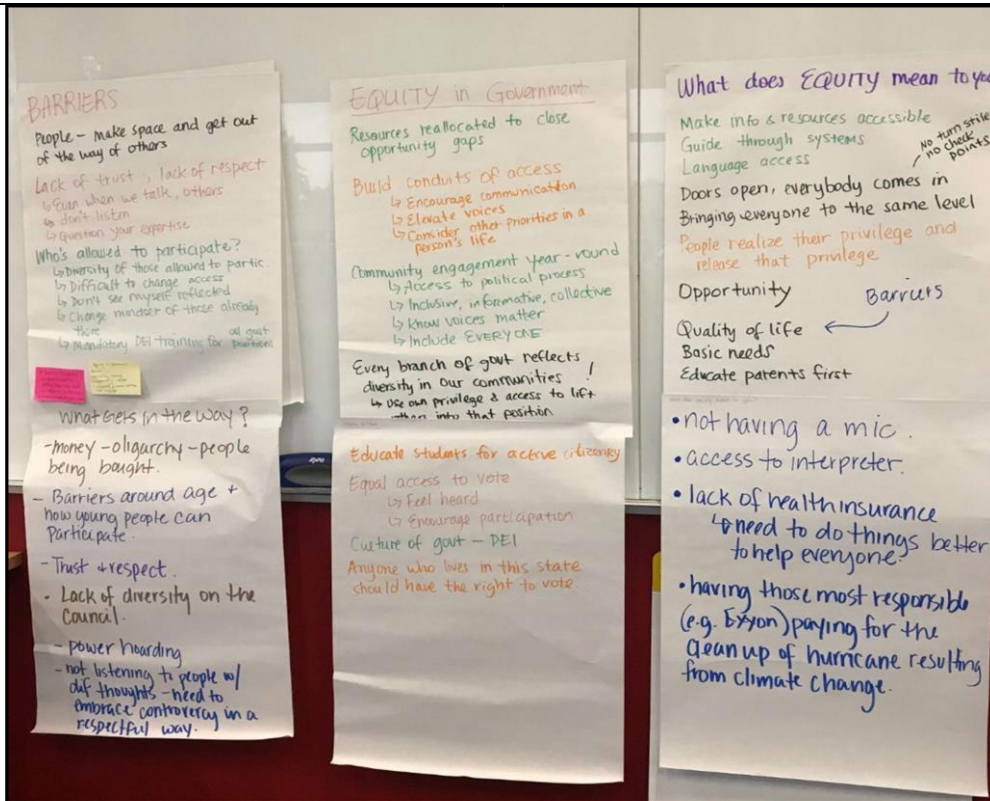 BARRIERS
People - make space and get out
of the way of others
Lack of trust, lack of respect
↳ Even when we talk, others
↳ don't listen
↳ Question your expertise
Who's allowed to participate?
↳ Diversity of those allowed to partic.
↳ Difficult to change access
↳ Don't see myself reflected
↳ Change mindset of those already
there
↳ Mandatory DEI training for all govt
positions
What Gets in the way?
-money -oligarchy -people
being bought.
- Barriers around age +
how young people can
Participate.
-Trust + respect.
- Lack of diversity on the
Council.
- power hoarding
- not listening to people w/
dif thoughts - need to
embrace controvercy in a
respectful way.
EQUITY in Government
Resources reallocated to close
opportunity gaps
Build conduits of access
↳ Encourage communication
↳ Elevate voices
↳ Consider other priorities in a
person's life
Community engagement year-round
↳ Access to political process
↳ Inclusive, informative, collective
↳ Know voices matter
↳ Include EVERYONE
Every branch of govt reflects
diversity in our communities!
↳ Use own privilege & access to lift
into that position
Educate students for active citizenry
Equal access to vote
↳ Feel heard
↳ Encourage participation
Culture of govt - DEI
Anyone who lives in this state
should have the right to vote
What does EQUITY mean to you
Make info & resources accessible
Guide through systems
Language access
No turn stile
no check
points
Doors open, everybody comes in
Bringing everyone to the same level
People realize their privilege and
release that privilege
Opportunity
Barriers
Quality of life
Basic needs
Educate parents first
• not having a mic.
• access to interpreter.
• lack of health insurance
↳ need to do things better
to help everyone?
• having those most responsible
(e.g. Exxon) paying for the
clean up of hurricane resulting
from climate change.